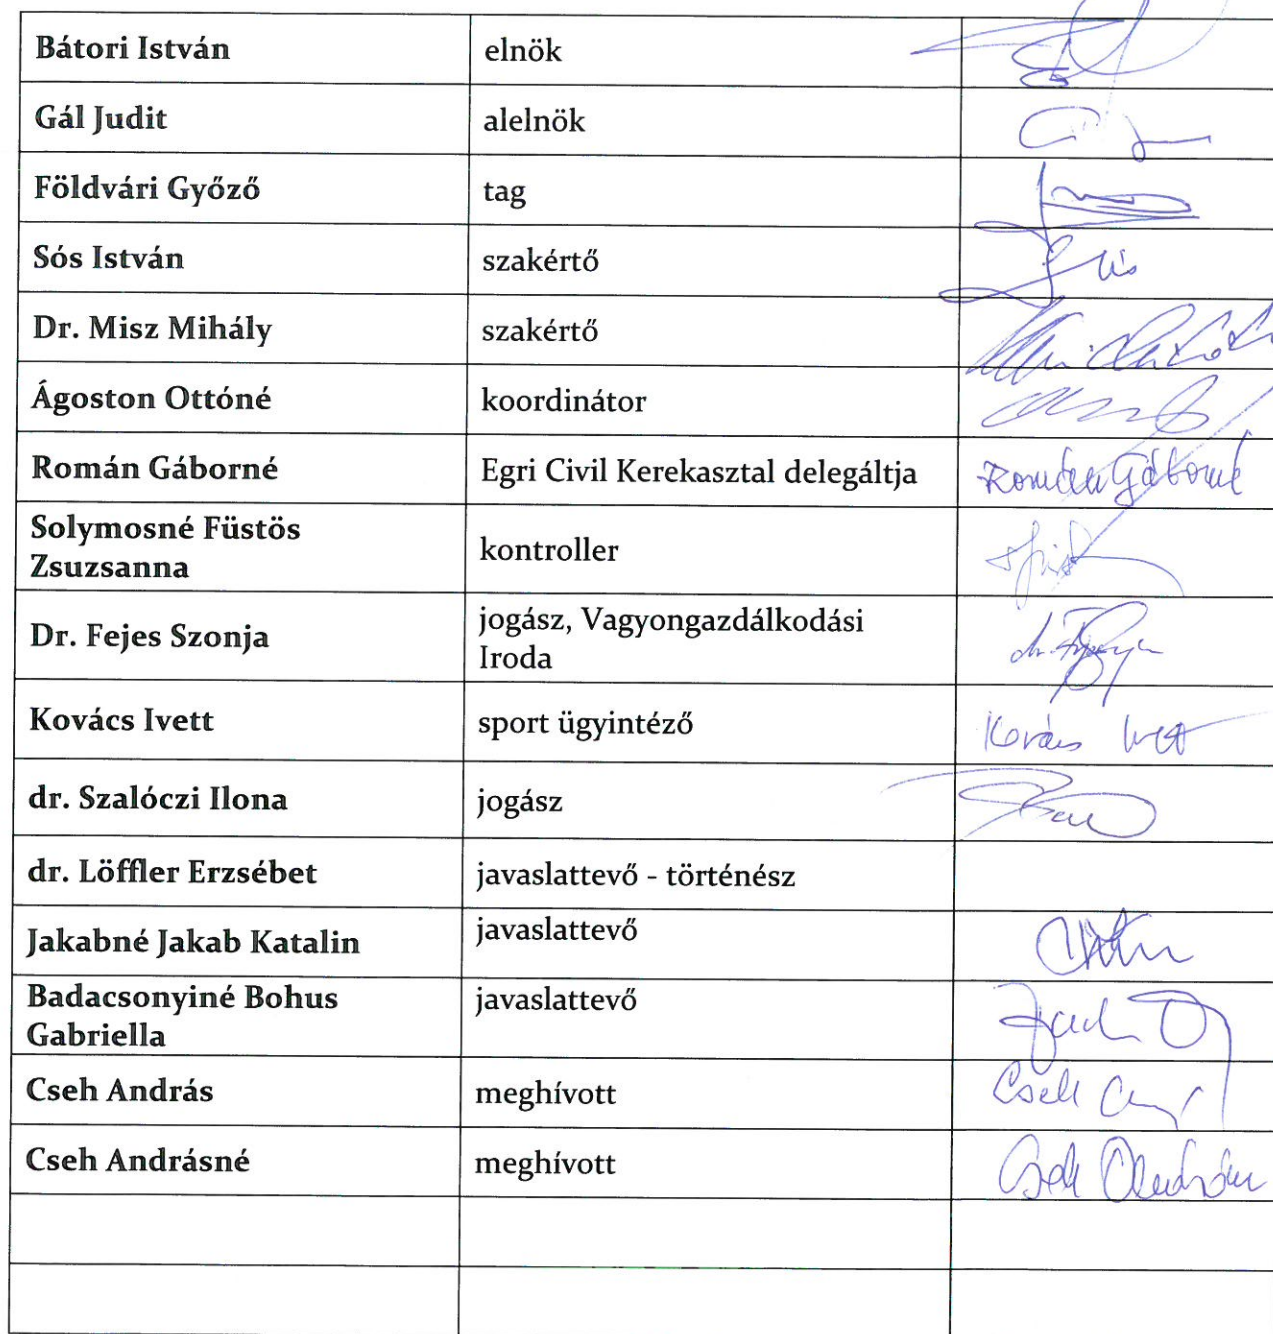 Bátori István elnök
Gál Judit alelnök
Földvári Győző tag
Sós István szakértő
Dr. Misz Mihály szakértő
Ágoston Ottóné koordinátor
Román Gáborné Egri Civil Kerekasztal delegáltja Román Gáborné
Solymosné Füstös
Zsuzsanna
kontroller
Dr. Fejes Szonja
jogász, Vagyongazdálkodási
Iroda
Kovács Ivett sport ügyintéző Kovács Ivett
dr. Szalóczi Ilona jogász
dr. Löffler Erzsébet javaslattevő - történész
Jakabné Jakab Katalin javaslattevő
Badacsonyiné Bohus
Gabriella
javaslattevő
Cseh András meghívott Cseh
Cseh Andrásné meghívott Cseh Andrásné